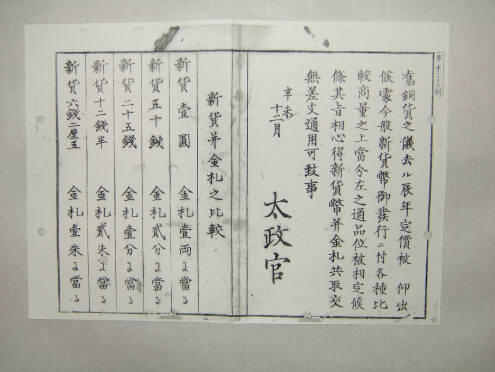 舊銅貨之儀去ル辰年定價被 仰出
候處今般新貨幣御發行ニ付各種比
較商量之上當分左之通品位被相定候
條其旨相心得新貨幣并金札共取交
無差支通用可致事
辛未
十二月
太政官
新貨并金札之比較
新貨壹圓 金札壹両ニ當る
新貨五十錢 金札貳分ニ當る
新貨二十五錢 金札壹分ニ當る
新貨十二錢半 金札貳朱ニ當る
新貨六錢二厘五 金札壹朱ニ當る